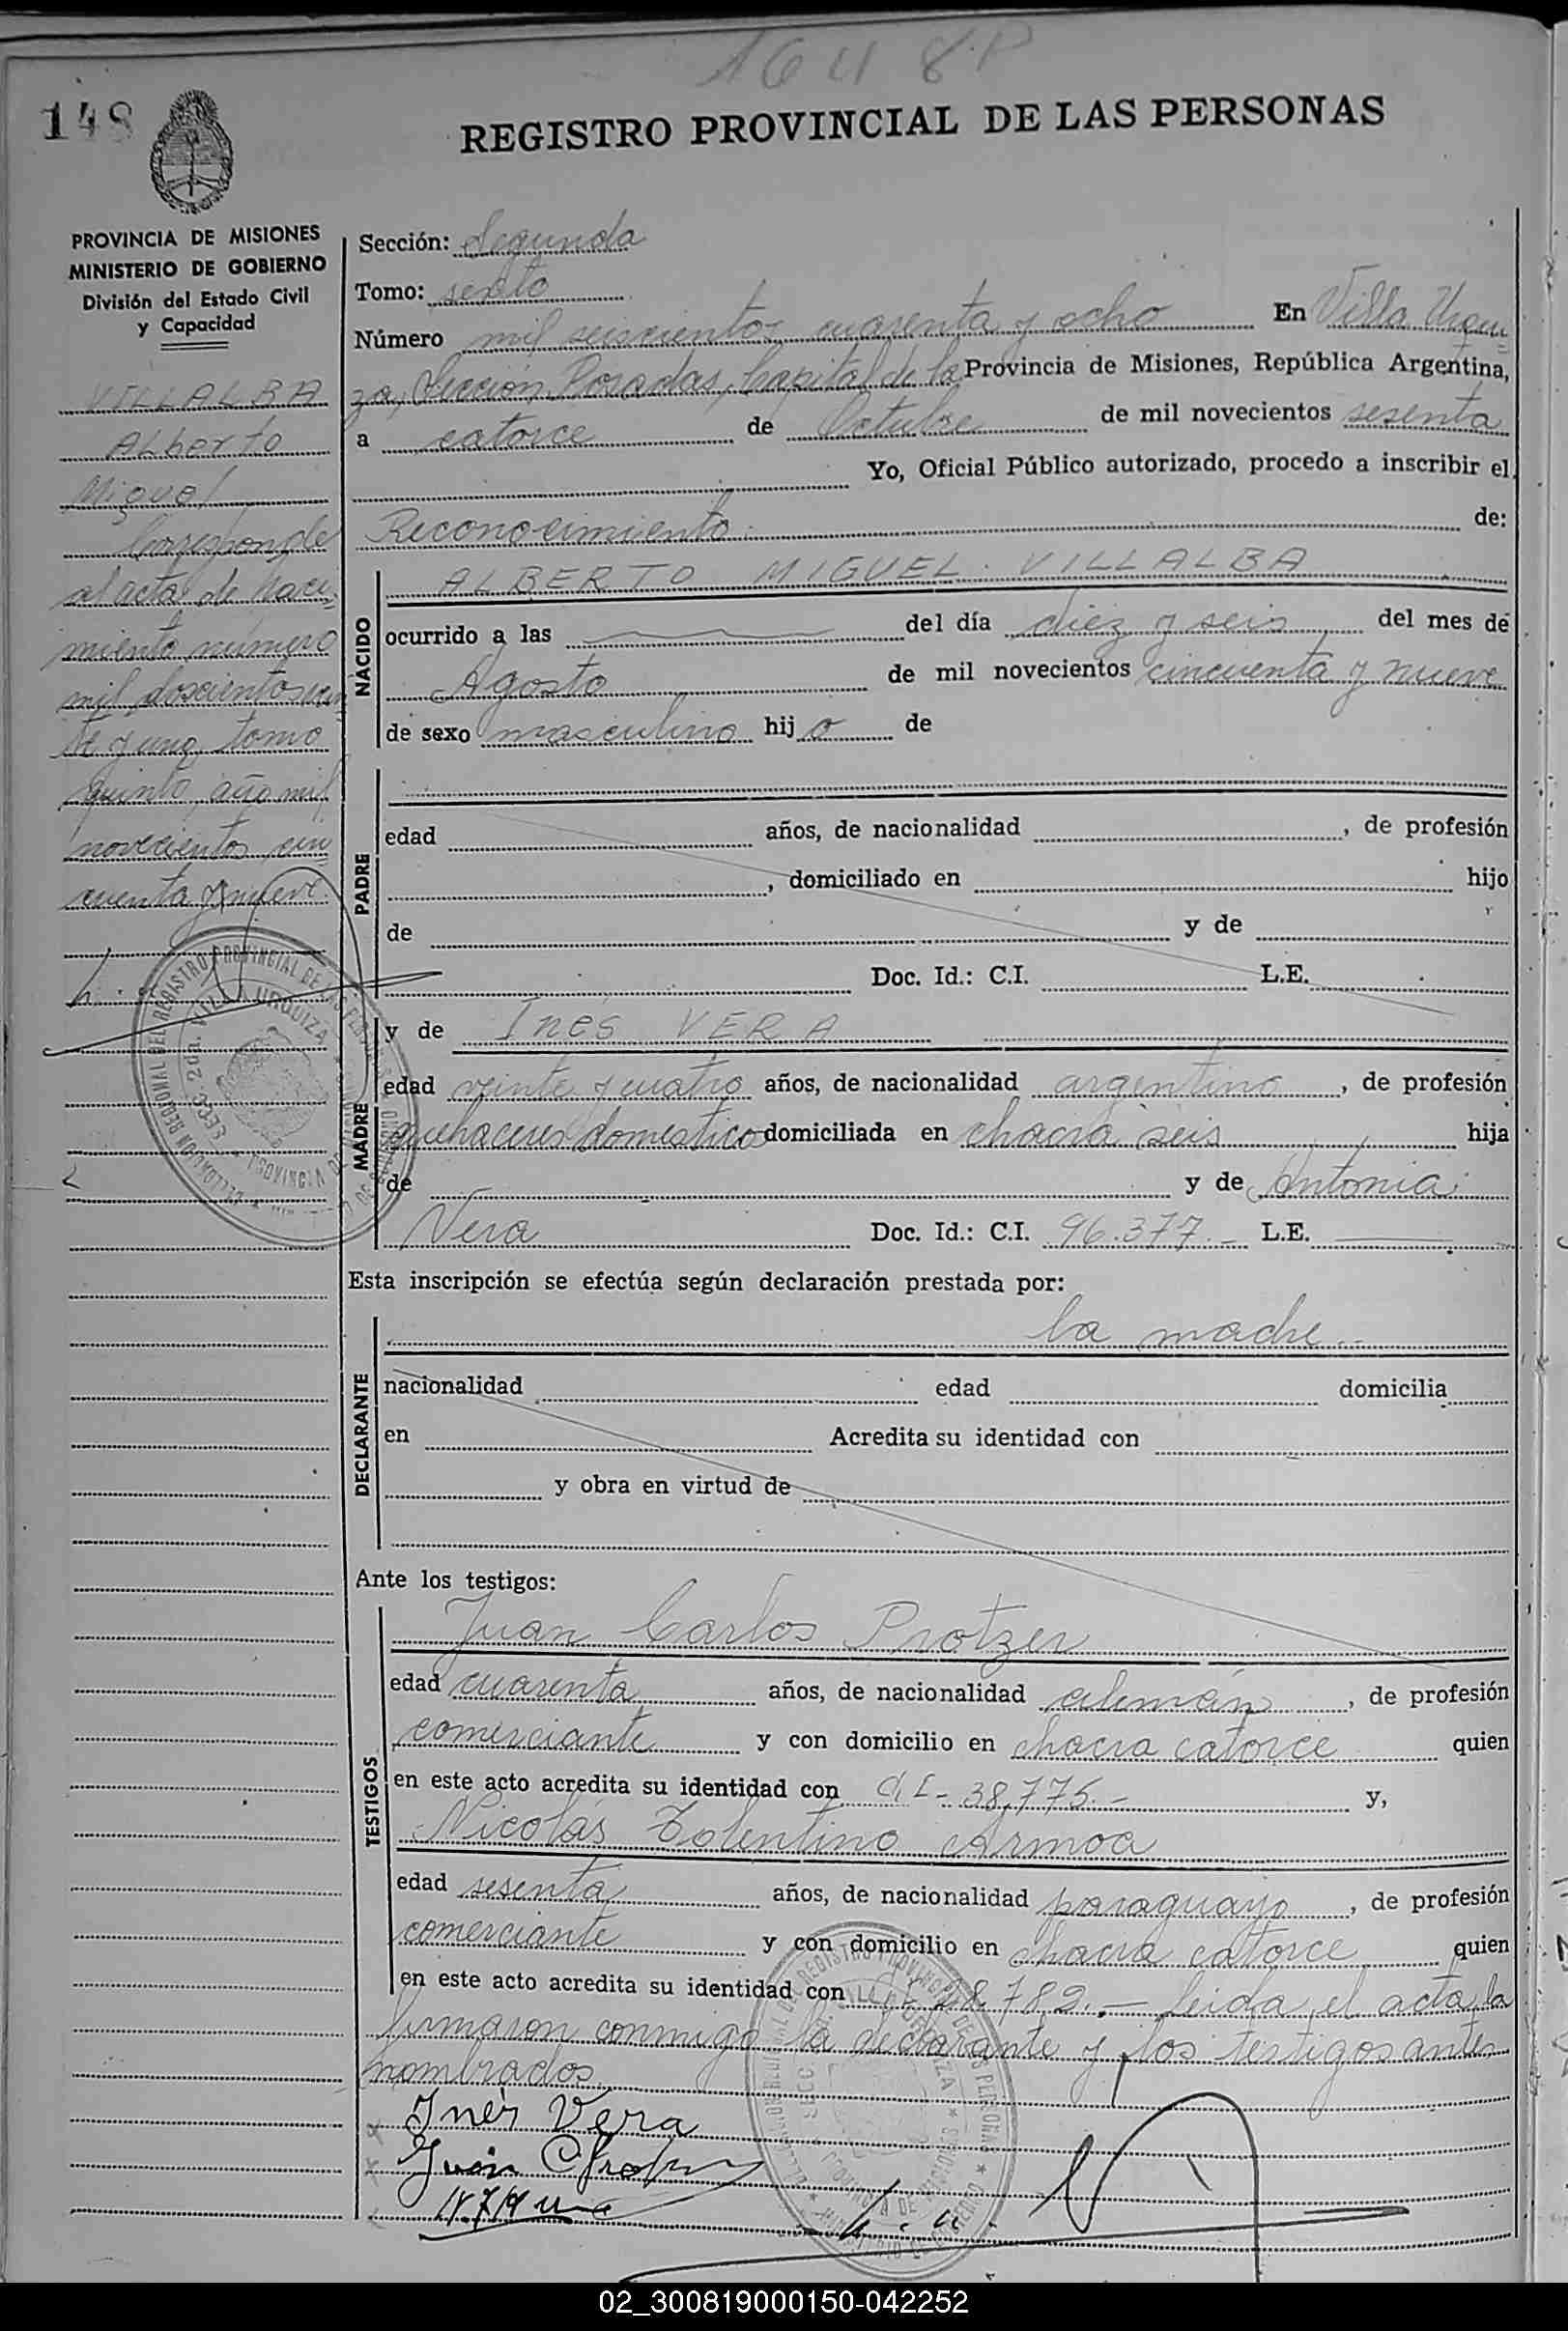 1648P
148
REGISTRO PROVINCIAL DE LAS PERSONAS
PROVINCIA DE MISIONES
MINISTERIO DE GOBIERNO
División del Estado Civil
y Capacidad
VILLALBA
Alberto
Miguel
Corresponde
al acta de naci
miento número
mil doscientos
te y uno, tomo
quinto, año mil
novecientos cin
cuenta y nueve.
Sección: Segunda
Tomo: sexto
Número mil seiscientos cuarenta y ocho En Villa Urqui
za, Sección Posadas, Capital de la Provincia de Misiones, República Argentina,
a catorce de Octubre de mil novecientos sesenta
Yo, Oficial Público autorizado, procedo a inscribir el
Reconocimiento de:
NACIDO
ALBERTO MIGUEL VILLALBA
ocurrido a las del día diez y seis del mes de
Agosto de mil novecientos cincuenta y nueve
de sexo masculino hijo de
PADRE
edad años, de nacionalidad , de profesión
, domiciliado en hijo
de y de
Doc. Id.: C.I. L.E.
MADRE
y de Inés VERA
edad veinte y cuatro años, de nacionalidad argentina, de profesión
quehaceres domestico domiciliada en chacra seis hija
de y de Antonia
Vera Doc. Id.: C.I. 96.377.- L.E.
Esta inscripción se efectúa según declaración prestada por:
DECLARANTE
la madre.-
nacionalidad edad domicilia
en Acredita su identidad con
y obra en virtud de
Ante los testigos:
TESTIGOS
Juan Carlos Protzer
edad cuarenta años, de nacionalidad alemán, de profesión
comerciante y con domicilio en chacra catorce quien
en este acto acredita su identidad con C.I- 38.775.- y,
Nicolás Tolentino Armoa
edad sesenta años, de nacionalidad paraguayo, de profesión
comerciante y con domicilio en chacra catorce quien
en este acto acredita su identidad con 782.- Leida el acta, la
firmaron conmigo la declarante y los testigos antes
nombrados.
Inés Vera
Juan C
02_300819000150-042252